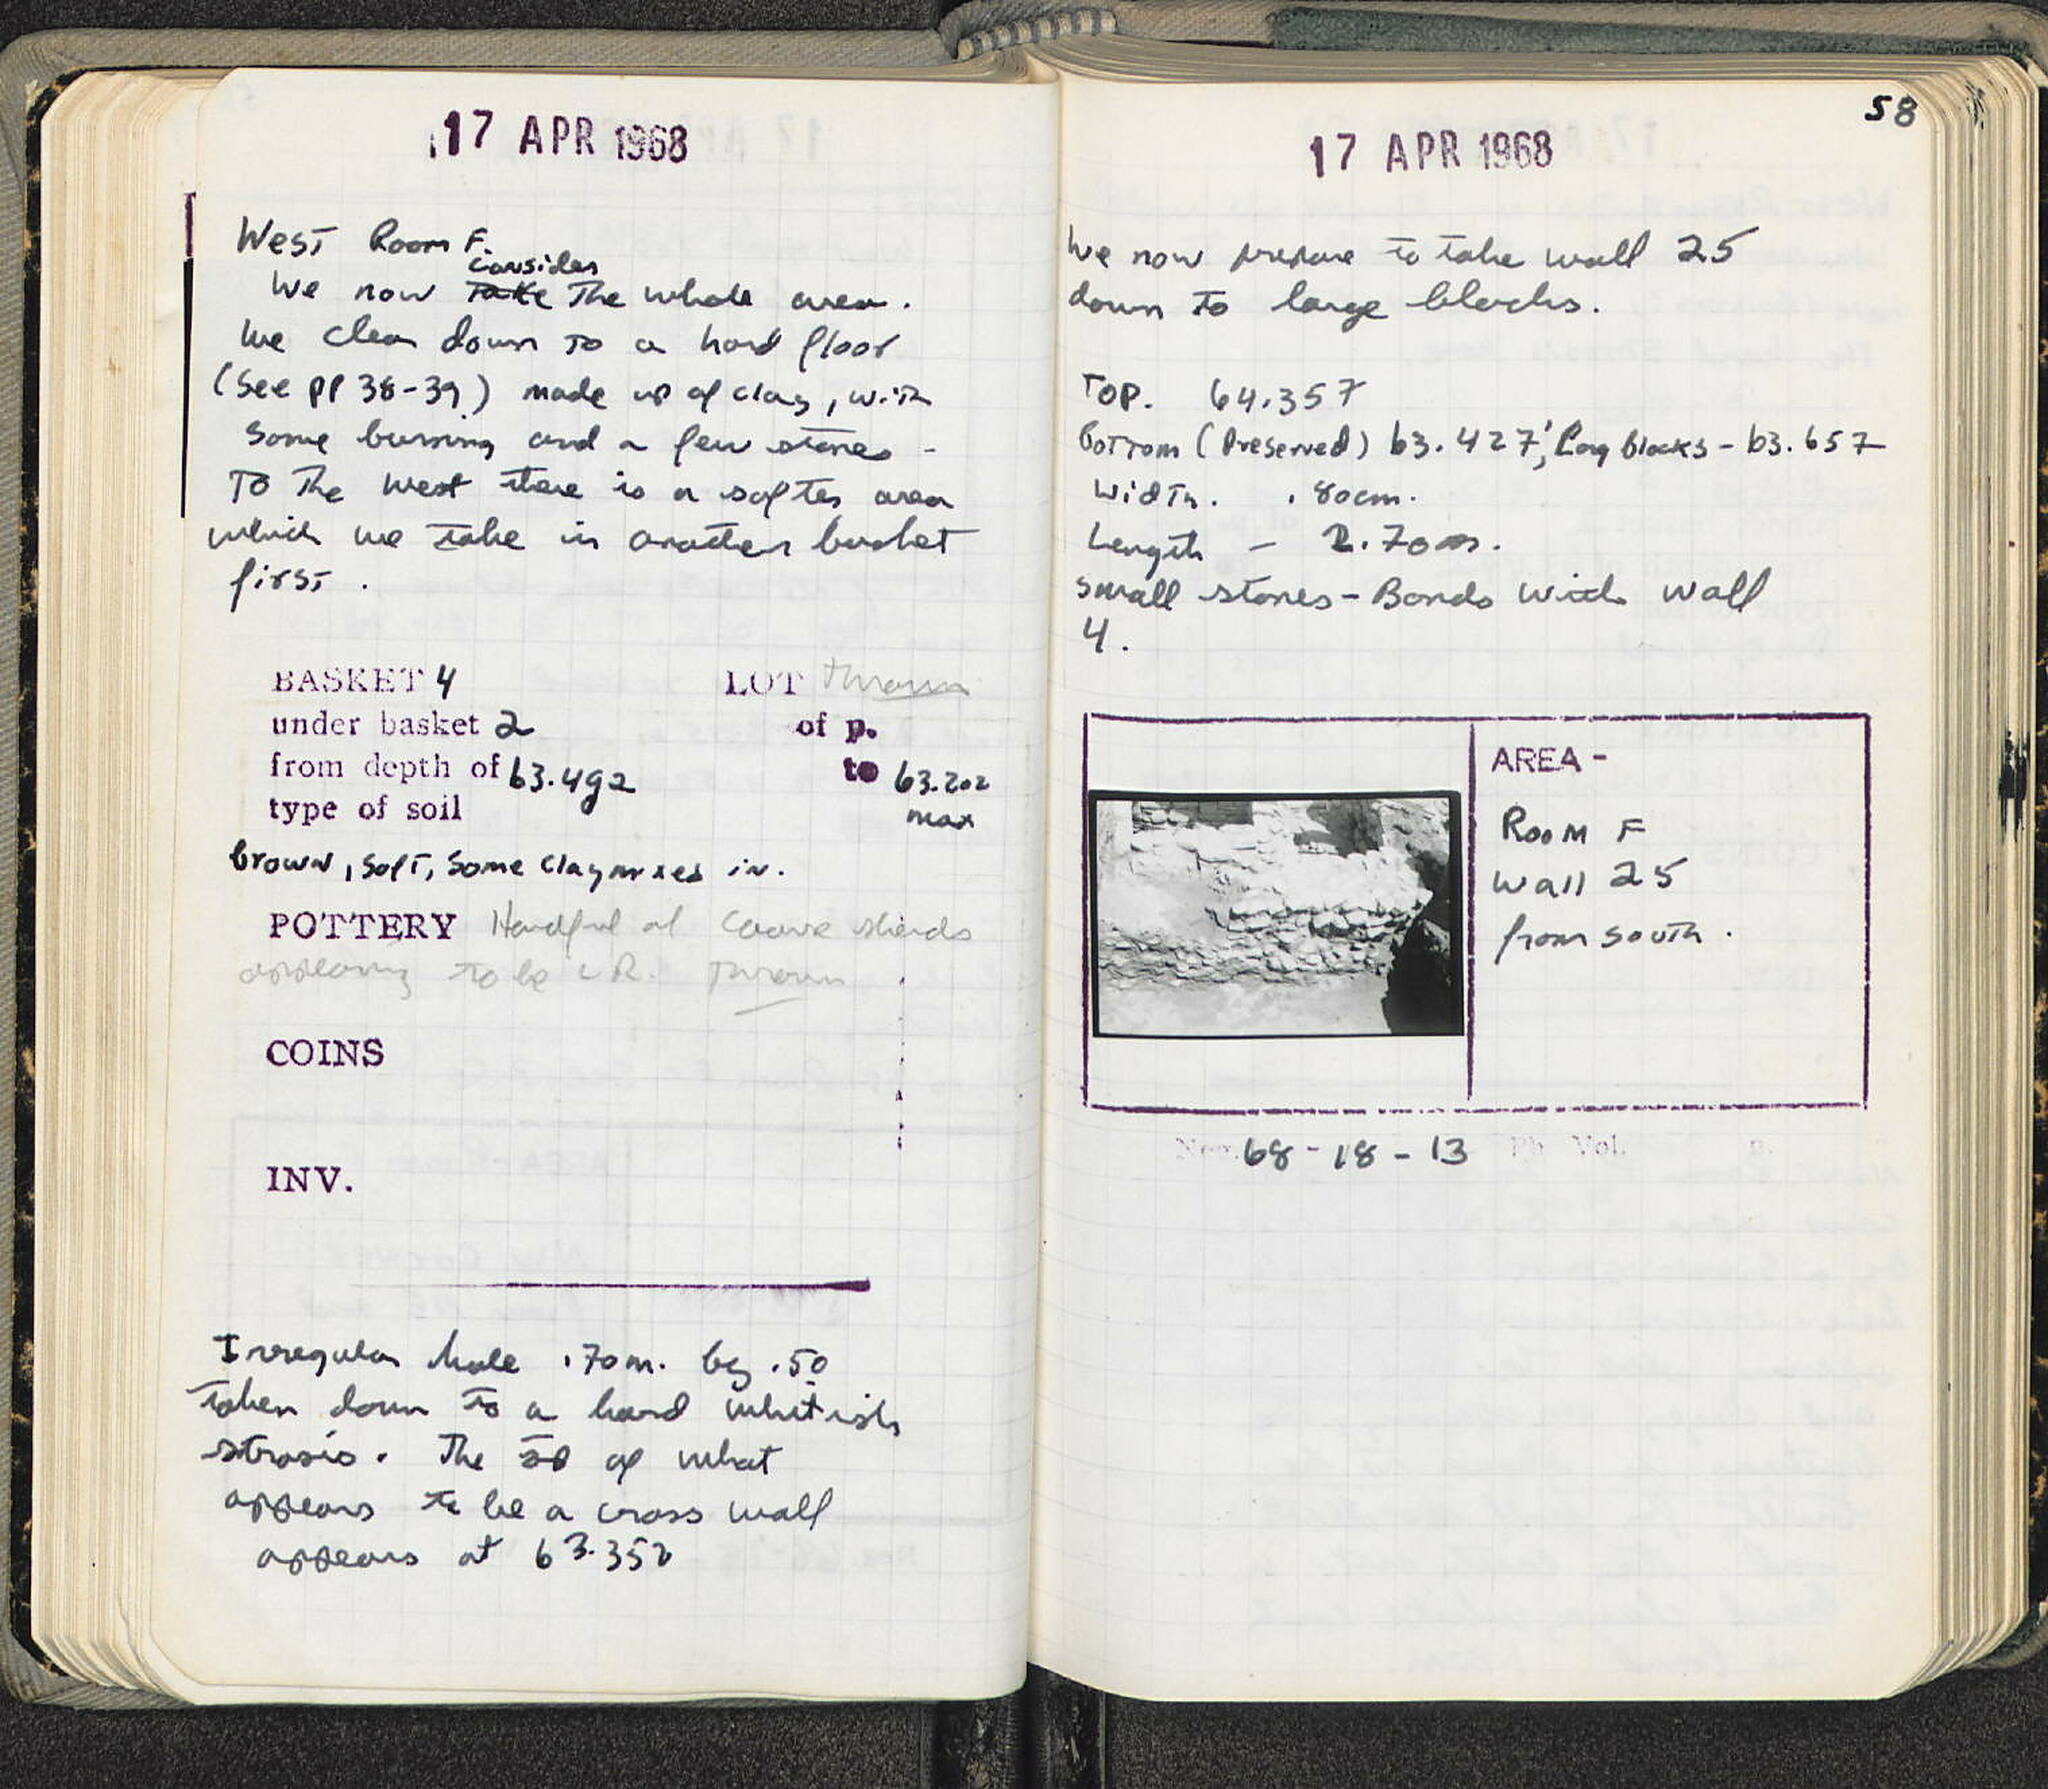 17 APR 1968
West Room F.
consider
We now take the whole area.
We clean down to a hard floor
(See pp 38-39) made up of clay, with
some burning and a few stones -
To the west there is a softer area
which we take in another basket
first.
BASKET 4 LOT thrown
under basket 2 of p.
from depth of 63.492 to 63.202
max
type of soil
brown, soft, some clay mixed in.
POTTERY Handful of coarse sherds
appearing to be LR. Thrown
COINS
INV.
Irregular hole .70m. by .50
taken down to a hard whitish
strosis. The top of what
appears to be a cross wall
appears at 63.352
58
17 APR 1968
We now prepare to take wall 25
down to large blocks.
Top. 64.357
Bottom (Preserved) 63.427; Long Blocks - 63.657
Width. .80cm.
Length - 2.70m.
small stones - Bonds with wall
4.
AREA -
Room F
Wall 25
from south.
Neg. 68-18-13 Ph. Vol. p.